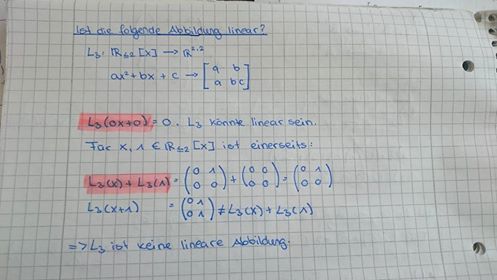 Ist die folgende Abbildung linear?
L₃: ℝ≤2 [x] → ℝ²·²
ax² + bx + c → [a b; a bc]
L₃(0x+0) = 0. L₃ könnte linear sein.
Für x, 1 ∈ ℝ≤2 [x] ist einerseits:
L₃(x) + L₃(1) = (0 1; 0 0) + (0 0; 0 0) = (0 1; 0 0)
L₃(x+1) = (0 1; 0 1) ≠ L₃(x) + L₃(1)
=> L₃ ist keine lineare Abbildung.